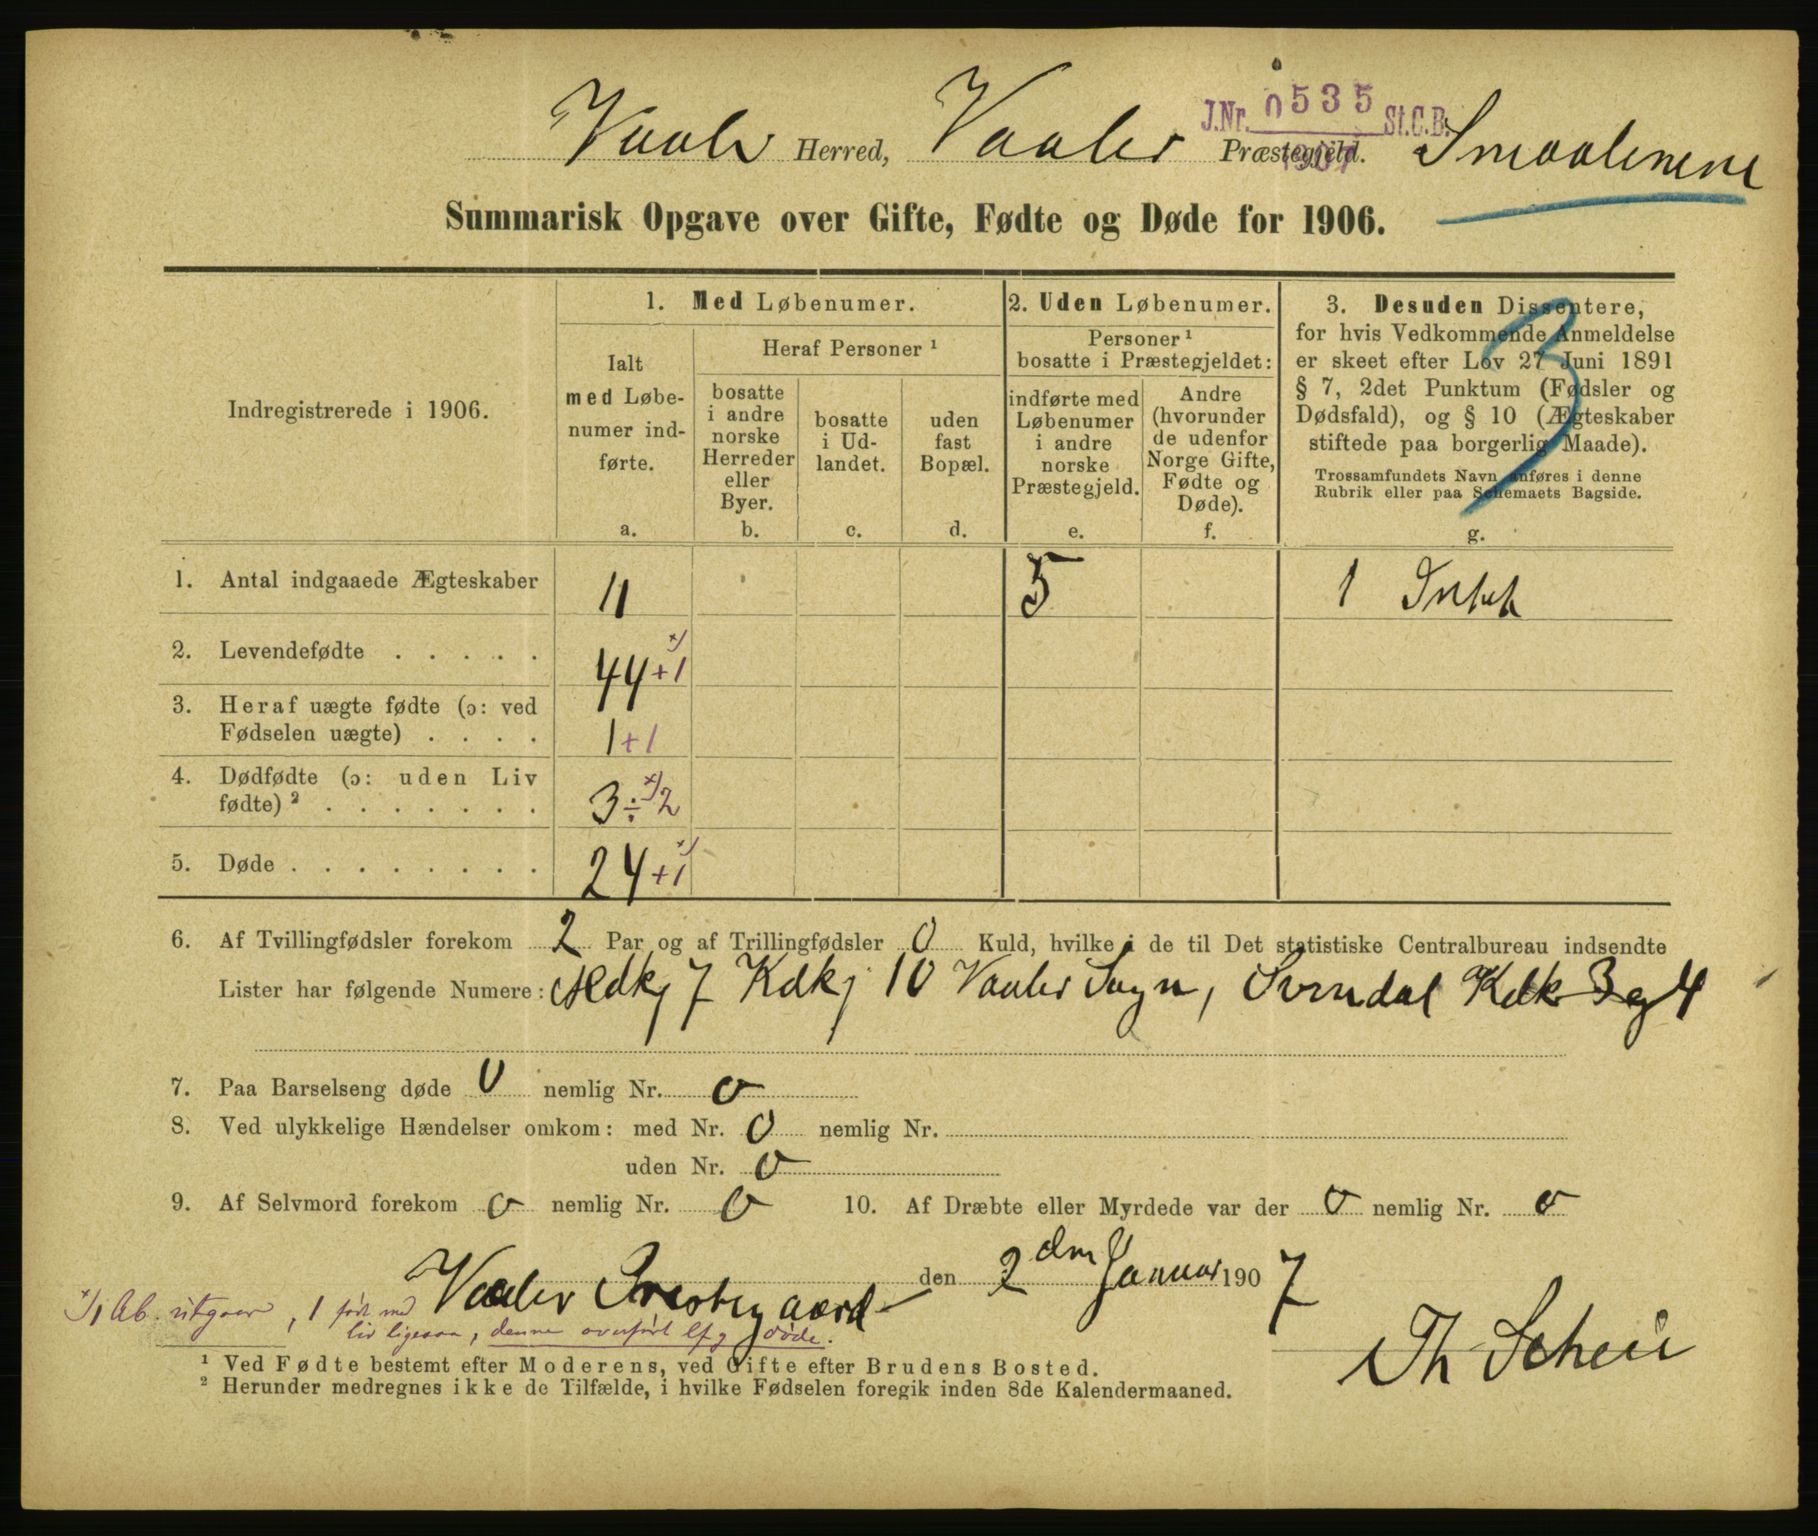 J.Nr. 0535 St.C.B.
1907
Vaaler Herred, Vaaler Præstegjeld. Smaalenene
Summarisk Opgave over Gifte, Fødte og Døde for 1906.
Indregistrerede i 1906.
1. Med Løbenumer.
Ialt
med Løbe-
numer ind-
førte.
a.
Heraf Personer ¹
bosatte
i andre
norske
Herreder
eller
Byer.
b.
bosatte
i Ud-
landet.
c.
uden
fast
Bopæl.
d.
2. Uden Løbenumer.
Personer ¹
bosatte i Præstegjeldet:
indførte med
Løbenumer
i andre
norske
Præstegjeld.
e.
Andre
(hvorunder
de udenfor
Norge Gifte,
Fødte og
Døde).
f.
3. Desuden Dissentere,
for hvis Vedkommende Anmeldelse
er skeet efter Lov 27 Juni 1891
§ 7, 2det Punktum (Fødsler og
Dødsfald), og § 10 (Ægteskaber
stiftede paa borgerlig Maade).
Trossamfundets Navn anføres i denne
Rubrik eller paa Schemaets Bagside.
g.
3
1. Antal indgaaede Ægteskaber 11 5 1
2. Levendefødte . . . . . 44 +1 x)
3. Heraf uægte fødte (ɔ: ved
Fødselen uægte) . . . . 1 +1
4. Dødfødte (ɔ: uden Liv
fødte) ² . . . . . . . 3 ÷ 2 x)
5. Døde . . . . . . . . 24 +1 x)
6. Af Tvillingfødsler forekom 2 Par og af Trillingfødsler 0 Kuld, hvilke i de til Det statistiske Centralbureau indsendte
Lister har følgende Numere: Mdkj 7 Kdkj 10 Vaaler Sogn, Svendal Kdk 3 og 4
7. Paa Barselseng døde 0 nemlig Nr. 0
8. Ved ulykkelige Hændelser omkom: med Nr. 0 nemlig Nr.
uden Nr. 0
9. Af Selvmord forekom 0 nemlig Nr. 0 10. Af Dræbte eller Myrdede var der 0 nemlig Nr. 0
Vaaler Prestegaard den 2den Januar 1907
x) 1 Ab. utgaar, 1 født med
liv ligesaa, denne overført lfg døde.
Th Scheie
¹ Ved Fødte bestemt efter Moderens, ved Gifte efter Brudens Bosted.
² Herunder medregnes ikke de Tilfælde, i hvilke Fødselen foregik inden 8de Kalendermaaned.